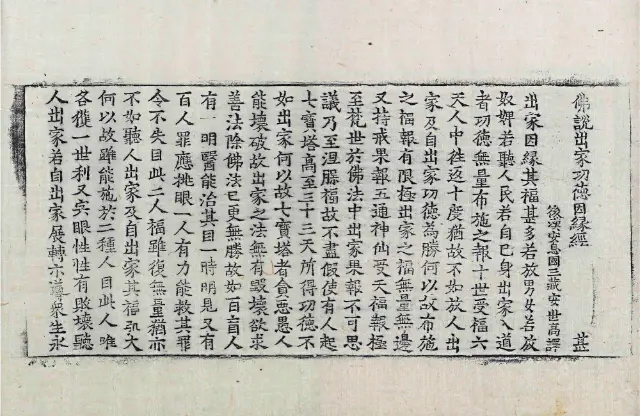 佛說出家功德因緣經 甚
後漢安息國三藏安世高譯
出家因緣其福甚多若放男女若放
奴婢若聽人民若自己身出家入道
者功德無量布施之報十世受福六
天人中往返十度猶故不如放人出
家及自出家功德為勝何以故布施
之福報有限極出家之福無量無邊
又持戒果報五通神仙受天福報極
至梵世於佛法中出家果報不可思
議乃至涅槃福故不盡假使有人起
七寶塔高至三十三天所得功德不
如出家何以故七寶塔者貪惡愚人
能壞破故出家之法無有毀壞欲求
善法除佛法已更無勝故如百盲人
有一明醫能治其目一時明見又有
百人罪應挑眼一人有力能救其罪
令不失目此二人福雖復無量猶亦
不如聽人出家及自出家其福弘大
何以故雖能施於二種人目此人唯
各獲一世利又突眼性性有敗壞聽
人出家若自出家展轉示導衆生永